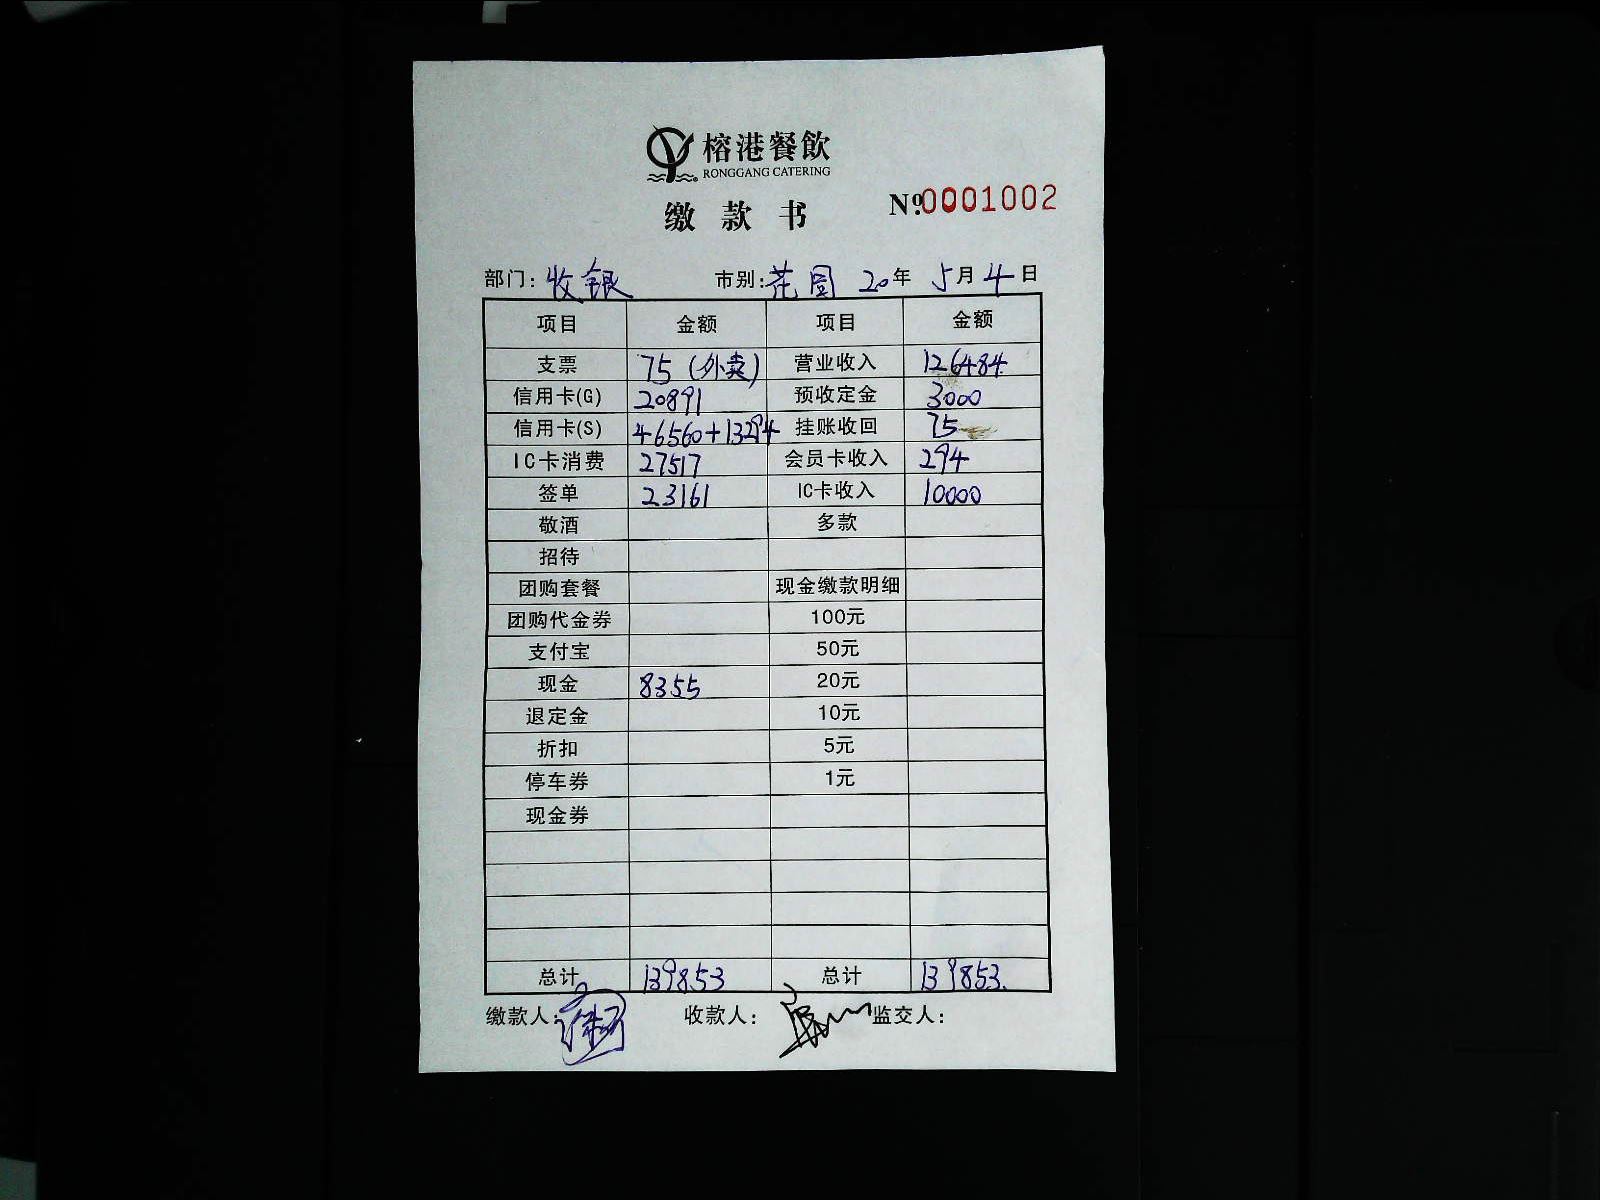 榕港餐飲
RONGGANG CATERING
缴款书
№0001002
部门：收银 市别：花园 20年 5月4日
项目 金额 项目 金额
支票 75（外卖） 营业收入 126484
信用卡(G) 20891 预收定金 3000
信用卡(S) 46560+13294 挂账收回 75
IC卡消费 27517 会员卡收入 294
签单 23161 IC卡收入 10000
敬酒 多款
招待
团购套餐 现金缴款明细
团购代金券 100元
支付宝 50元
现金 8355 20元
退定金 10元
折扣 5元
停车券 1元
现金券
总计 139853 总计 139853
缴款人： 收款人： 监交人：